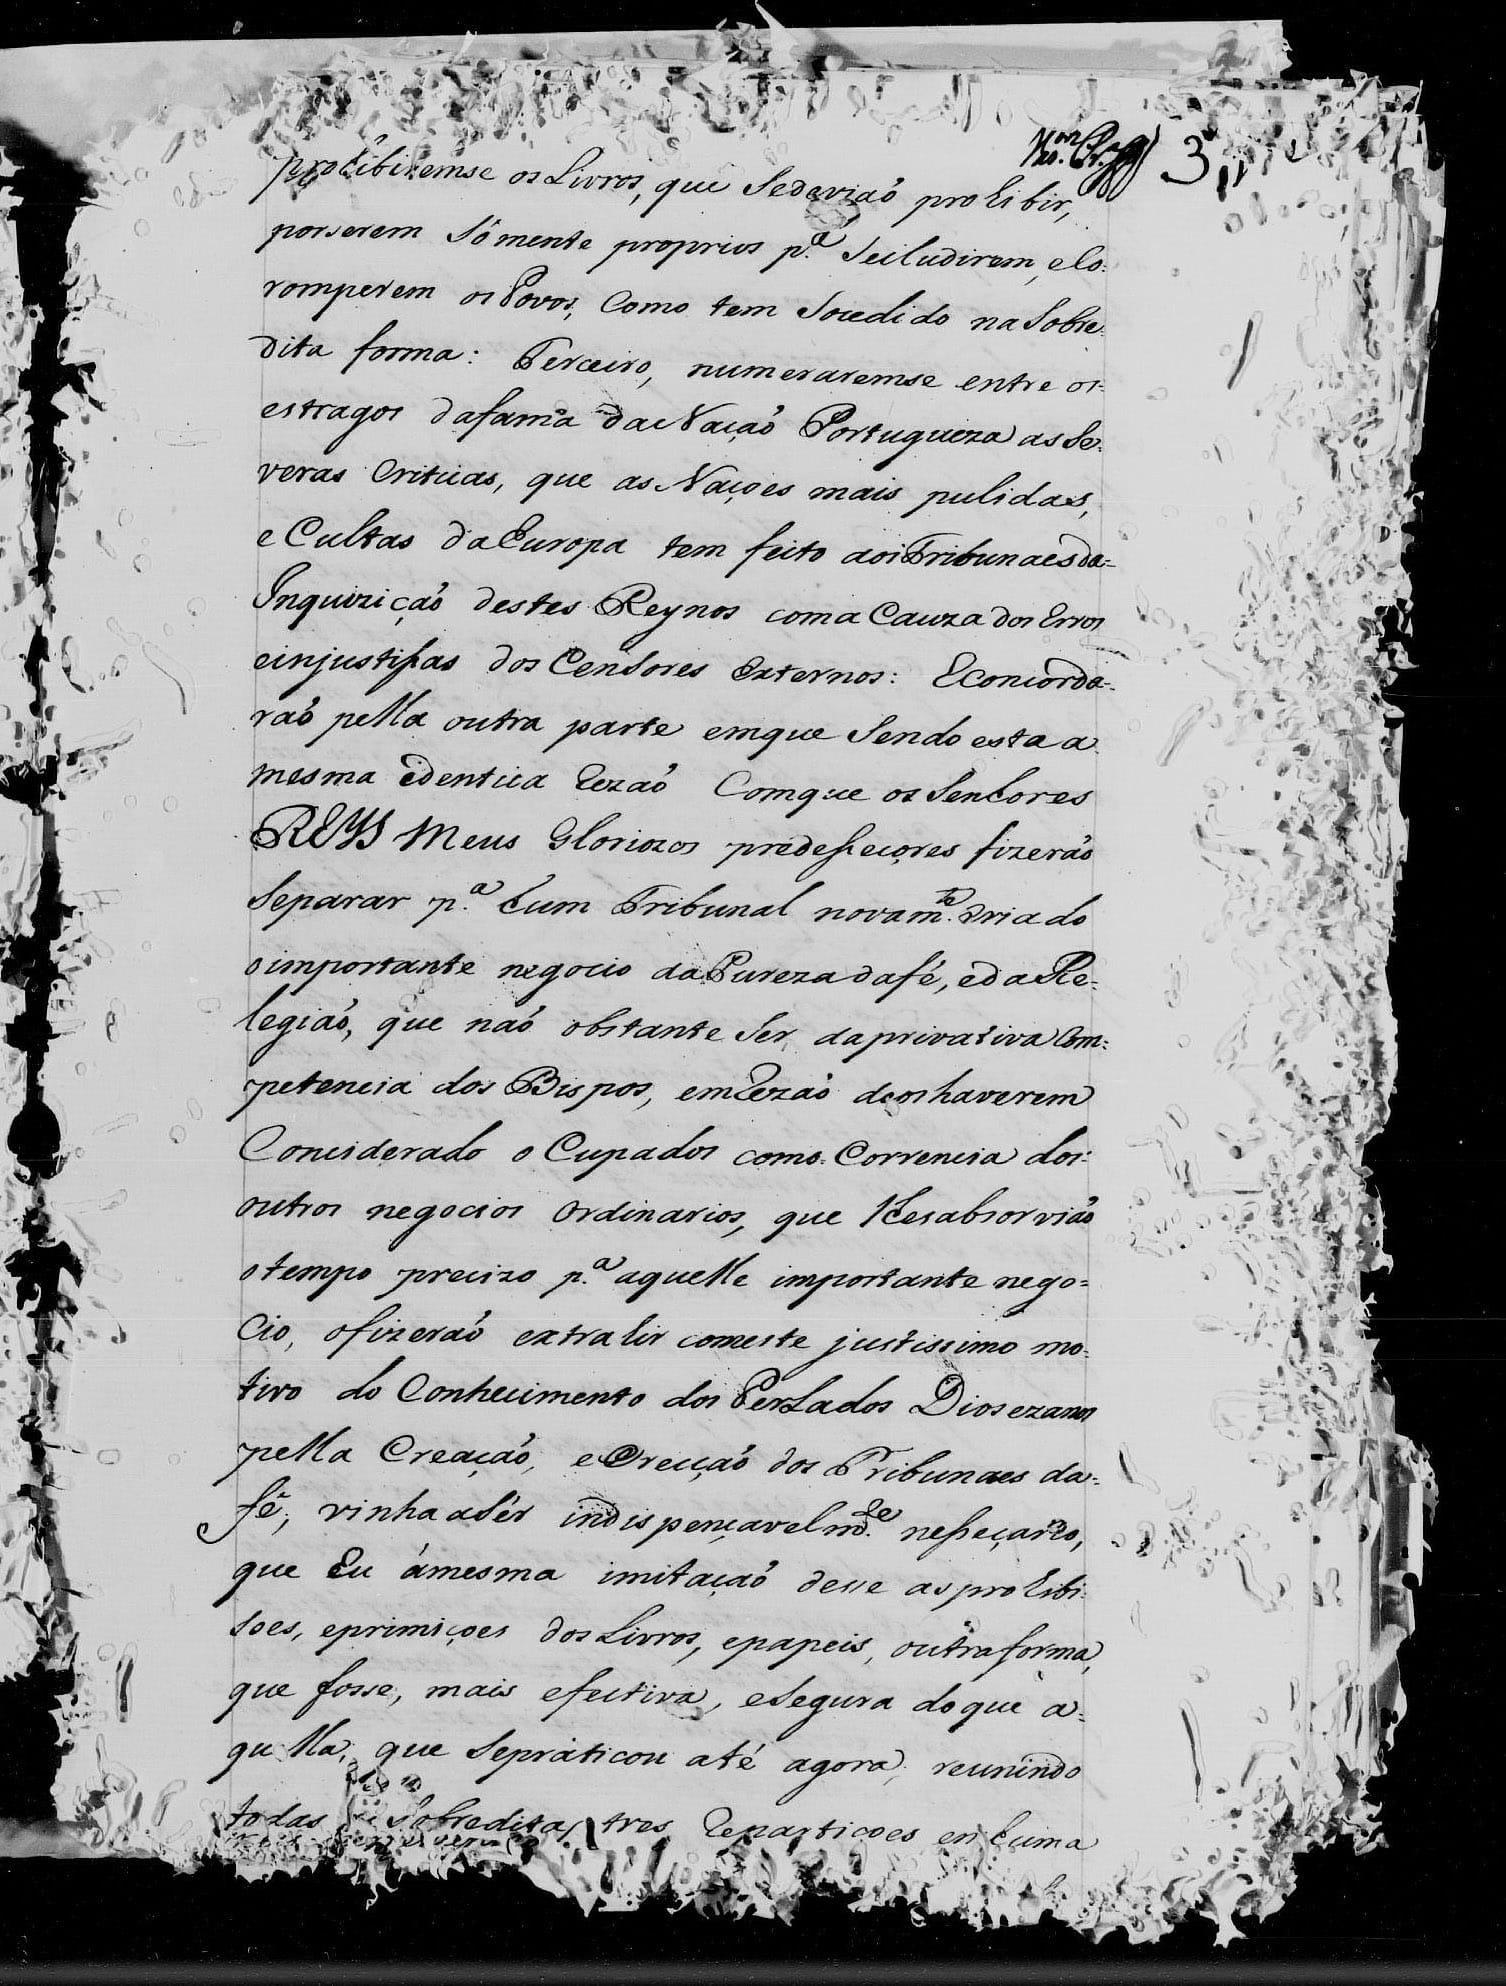 3
prohibiremse os Livros, que Sedevião prohibir,
porserem Sómente proprios p.ª Seiludirem, eCo:
romperem os Povos, Como tem Socedido na Sobre
dita forma: Terceiro, numeraremse entre os
estragos dafama daNação Portugueza as Se:
veras Criticas, que as Naçoes mais pulidas,
e Cultas daEuropa tem feito aos Tribunaes da=
Inquizição destes Reynos com a Cauza dos Erros
einjustissas dos Censores Externos: EConcorda:
rão pella outra parte emque Sendo esta a
mesma edentica Rezão Comque os Senhores
REYS Meus Gloriozos predesseçores fizerão
Separar p.ª hum Tribunal novam.te Criado
o importante negocio da Pureza dafé, eda Re:
legião, que não obstante Ser daprivativa Com:
petencia dos Bispos, emRezão deos haverem
Conciderado oCupados como Correncia dos:
outros negocios Ordinarios, que lhesabsorvião
otempo precizo p.ª aquelle importante nego=
Cio, ofizerão extrahir comeste justissimo mo:
tivo do Conhecimento dos Perlados Diosezanos
pella Creação, eErecção dos Tribunaes da:
fé, vinha aSér indispençavelm.te nesseçario,
que Eu ámesma imitação desse as prohibi:
soes, epremiçoes dos Livros, epapeis, outraforma,
que fosse, mais efectiva, eSegura doque a:
quella, que Sepráticou até agora, reunindo
todas Sobreditas tres Repartiçoes en huma